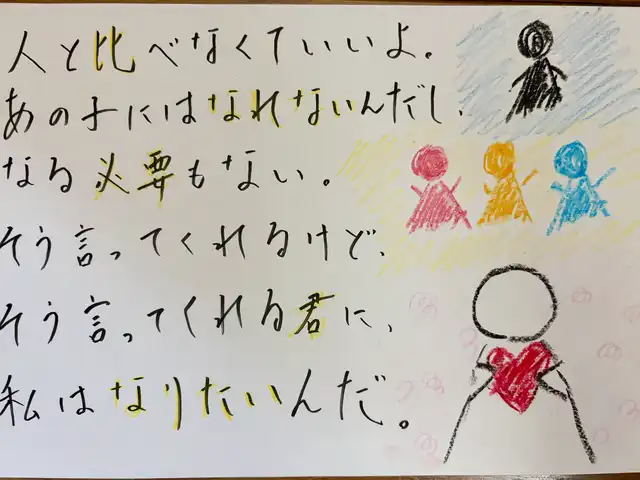 人と比べなくていいよ。
あの子にはなれないんだし、
なる必要もない。
そう言ってくれるけど、
そう言ってくれる君に、
私はなりたいんだ。